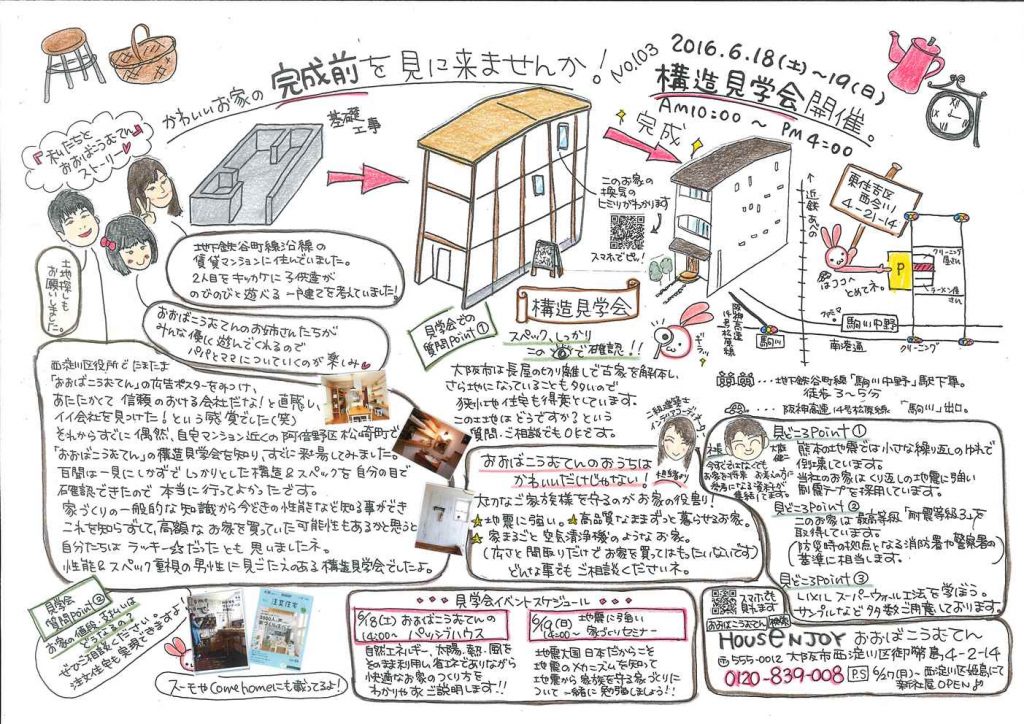 かわいいお家の 完成前を見に来ませんか!
No.103
2016.6.18(土)~19(日)
構造見学会開催。
AM10:00 ~ PM4:00
『私たちと
おおばこうむてん
ストーリー』
基礎
工事
完成
このお家の
換気の
ヒミツがわかります
スマホでピッ!
近鉄あべの
東住吉区
西今川
4-21-14
P
クリーニング
屋さん
ラーメン屋
さん
車は
ココへ
とめてネ。
阪神高速
14号松原線
駒川
駒川中野
南港通
クリーニング
土地探しも
お願いしました。
地下鉄谷町線沿線の
賃貸マンションに住んでいました。
2人目をキッカケに子供達が
のびのびと遊べる一戸建てを考えていました!
おおばこうむてんのお姉さんたちが
みんな優しく遊んでくれるので
パパとママについていくのが楽しみ
西淀川区役所でたまたま
「おおばこうむてん」の広告ポスターをみつけ、
あたたかくて信頼のおける会社だな!と直感し、
イイ会社を見つけた!という感覚でした(笑)
それからすぐに偶然、自宅マンション近くの阿倍野区松崎町で
「おおばこうむてん」の構造見学会を知り、すぐに参加してみました。
百聞は一見にしかずでしっかりとした構造&スペックを自分の目で
確認できたので本当に行ってよかったです。
家づくりの一般的な知識から今どきの性能など知る事ができ
これを知らずして、高額なお家を買っていた可能性もあるかと思うと
自分たちはラッキー☆だったとも思いましたネ。
性能&スペック重視の男性に見ごたえある構造見学会でしたよ。
構造見学会
見学会での
質問Point①
スペック、しっかり
この目で確認!!
ギラッ
大阪市は長屋の切り離しで古家を解体し、
さら地になっていることも多いので
狭小地住宅も得意としています。
この土地はどうですか?という
質問・ご相談でもOKです。
二級建築士
インテリアコーディネーター
おおばこうむてんのおうちは
かわいいだけじゃない!
大切なご家族様を守るのがお家の役割!
☆地震に強い。☆高品質なままずっと暮らせるお家。
☆家まるごと空気清浄機のようなお家。
(広さと間取りだけでお家を買ってはもったいないです)
どんな事でもご相談くださいネ。
・・・地下鉄谷町線「駒川中野」駅下車。
徒歩3~5分
・・・阪神高速14号松原線 「駒川」出口。
社長
見どころPoint①
熊本の地震では小さな繰り返しの中で
倒壊しています。
当社のお家はくり返しの地震に強い
制震テープを採用しています。
見どころPoint②
このお家は最高等級「耐震等級3」を
取得しています。
(防災時の拠点となる消防署や警察署の
基準に相当します。)
見どころPoint③
LIXILスーパーウォール工法を学ぼう。
サンプルなど多数ご用意しております。
スマホでも
見れます
見学会
質問Point②
お家の値段、支払いは
どうなるの?
ぜひご相談ください。
注文住宅も実現できますよ!
注文住宅
スーモやComehomeにも載ってるよ!
見学会イベントスケジュール
6/18(土) おおばこうむてんの
14:00~ パッシブハウス
自然エネルギー、太陽、熱、風を
そのまま利用し、省エネでありながら
快適なお家のつくり方を
わかりやすくご説明します!!
6/19(日) 地震に強い
14:00~ 家づくりセミナー
地震大国日本だからこそ
地震のメカニズムを知って
地震から家族を守る家づくりに
ついて一緒に勉強しましょう!!
おおばこうむてん 検索
HOUSENJOY おおばこうむてん
〒555-0012 大阪市西淀川区御幣島4-2-14
0120-839-008
P.S 6/27(月)~ 西淀川区姫島にて
新社屋OPEN